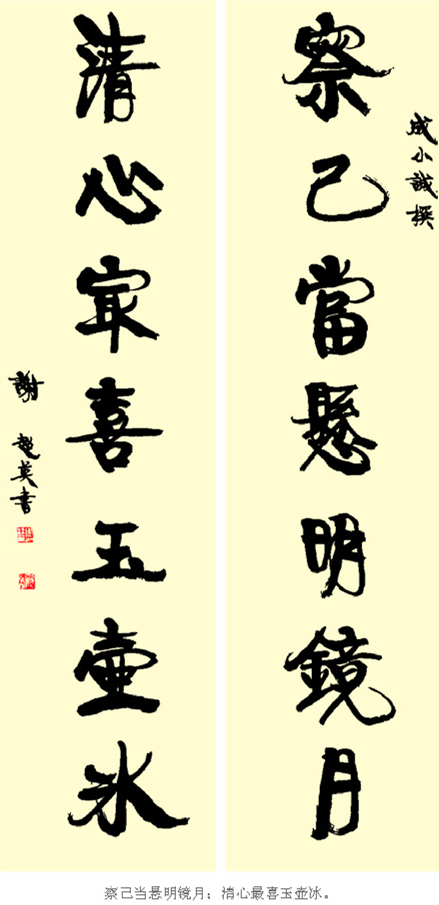 成小誠撰
察己當懸明鏡月
清心冣喜玉壺冰
謝超英書
察己当悬明镜月；清心最喜玉壶冰。